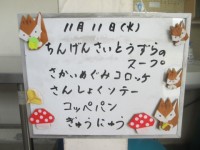 11月11日(火)
ちんげんさいとうずらの
スープ
さかいめぐみコロッケ
さんしょくソテー
コッペパン
ぎゅうにゅう